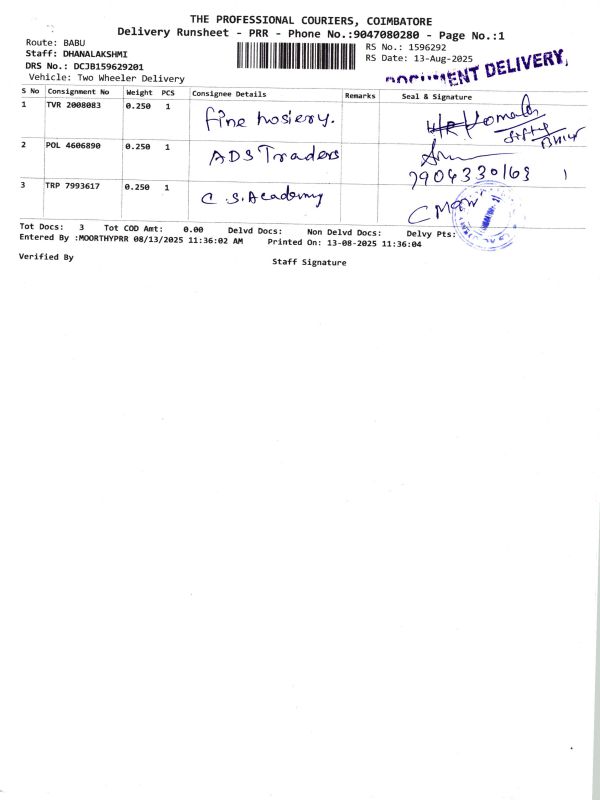 THE PROFESSIONAL COURIERS, COIMBATORE
Delivery Runsheet - PRR - Phone No.:9047080280 - Page No.:1
Route: BABU
RS No.: 1596292
Staff: DHANALAKSHMI
RS Date: 13-Aug-2025
DRS No.: DCJB159629201
DOCUMENT DELIVERY,
Vehicle: Two Wheeler Delivery
S No Consignment No Weight PCS Consignee Details Remarks Seal & Signature
1 TVR 2008083 0.250 1 fine hosiery.
2 POL 4606890 0.250 1 ADS Traders
7904330163
3 TRP 7993617 0.250 1 C.S.Academy
Tot Docs: 3 Tot COD Amt: 0.00 Delvd Docs: Non Delvd Docs: Delvy Pts:
Entered By :MOORTHYPRR 08/13/2025 11:36:02 AM Printed On: 13-08-2025 11:36:04
Verified By
Staff Signature